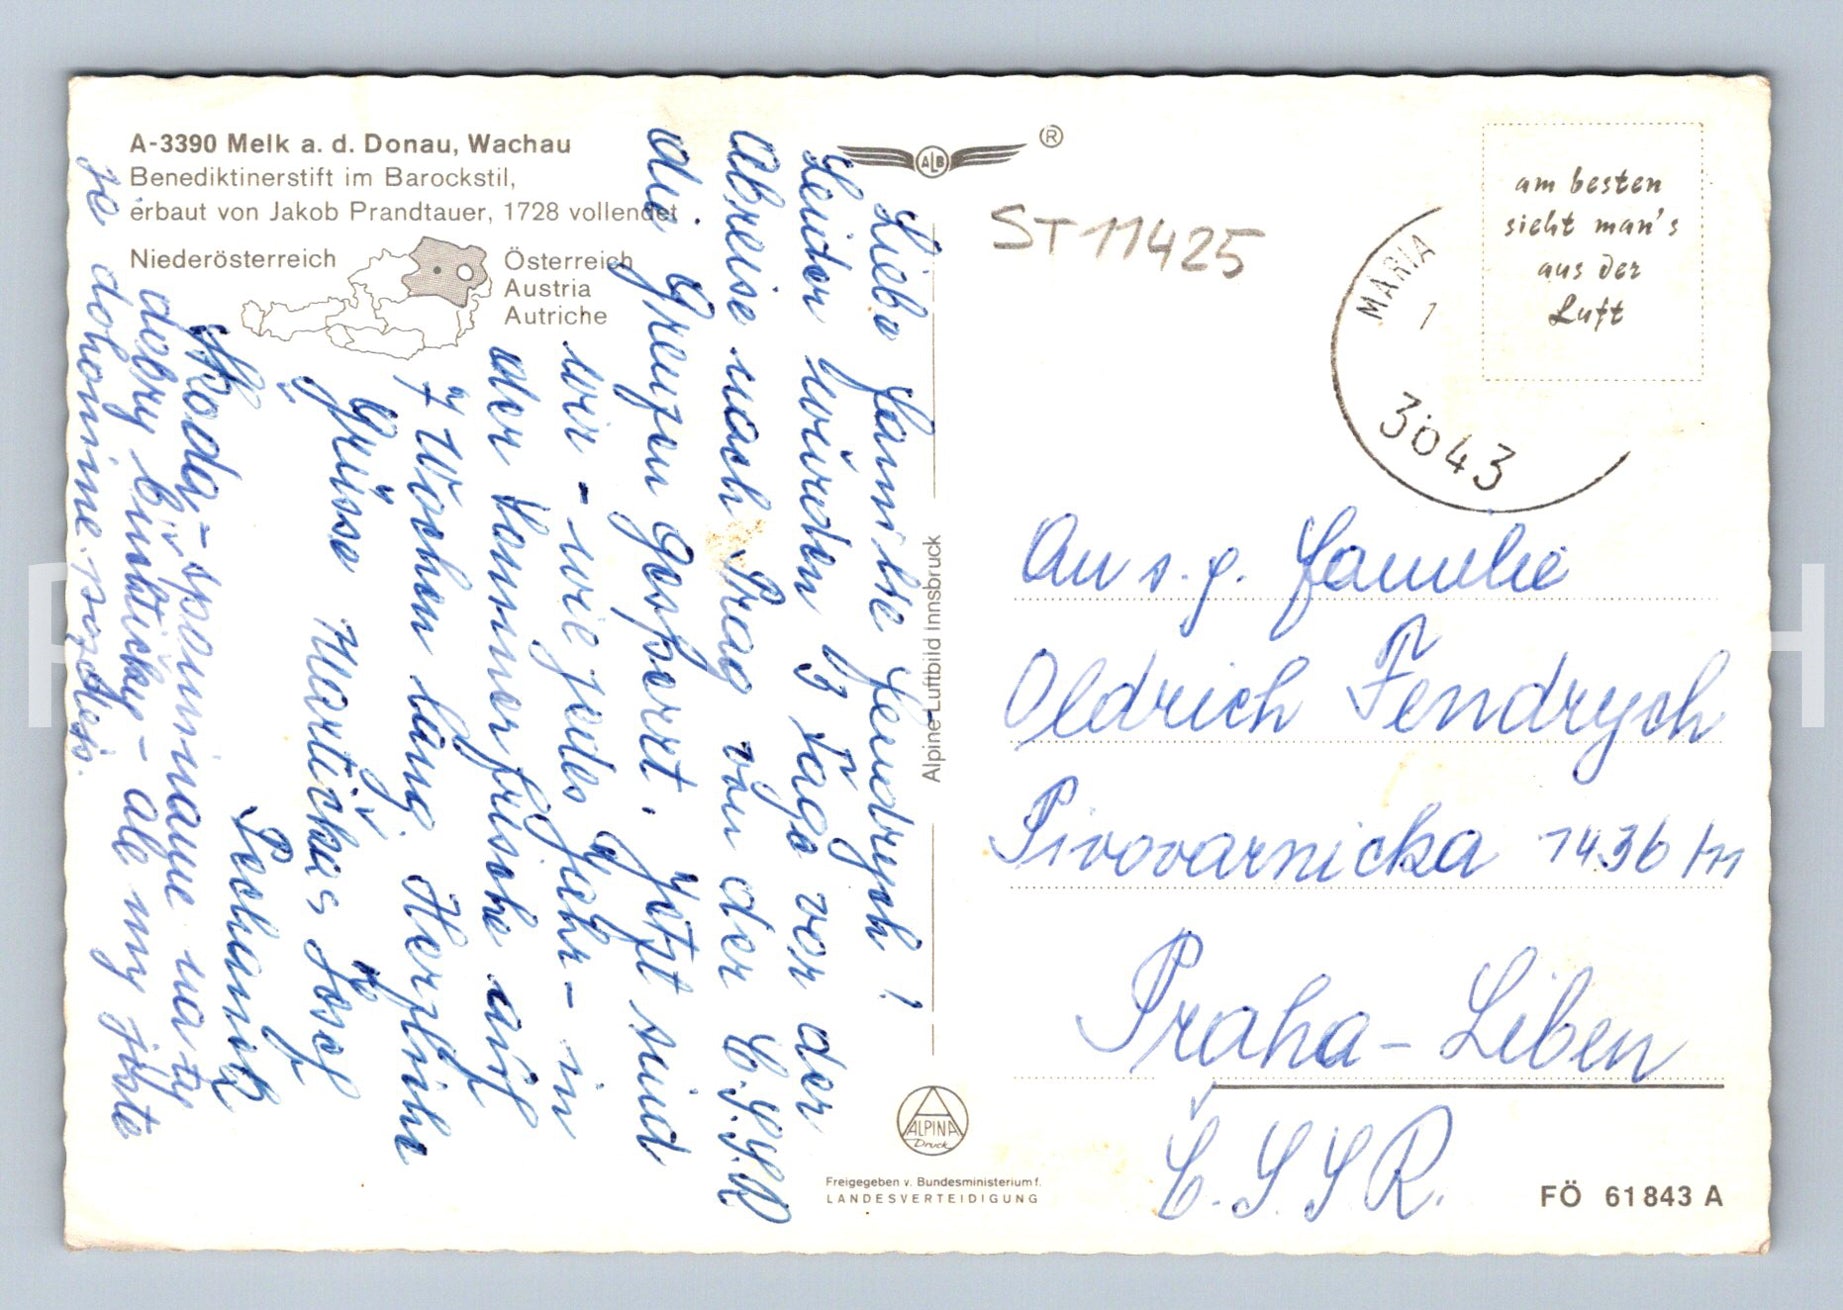 A-3390 Melk a. d. Donau, Wachau
Benediktinerstift im Barockstil,
erbaut von Jakob Prandtauer, 1728 vollendet
Niederösterreich
Österreich
Austria
Autriche
Liebe Familie Fendrych!
Leider wurden 3 Tage vor der
Abreise nach Prag von der Č.S.S.R
die Grenzen gesperrt. Jetzt sind
wir - wie jedes Jahr - in
der Sommerfrische auf
7 Wochen lang. Herzliche
Grüsse
Josef
Škoda, - spominame na ty
dobry buchticky - ale my jiste
je dohonime.
ALB ®
ST 11425
am besten
sieht man's
aus der
Luft
MARIA
1
3043
An s. g. Familie
Oldrich Fendrych
Pivovarnicka 1436/
Praha - Liben
Č.S.S.R.
Alpine Luftbild Innsbruck
ALPINA
Druck
Freigegeben v. Bundesministerium f.
LANDESVERTEIDIGUNG
FÖ 61 843 A